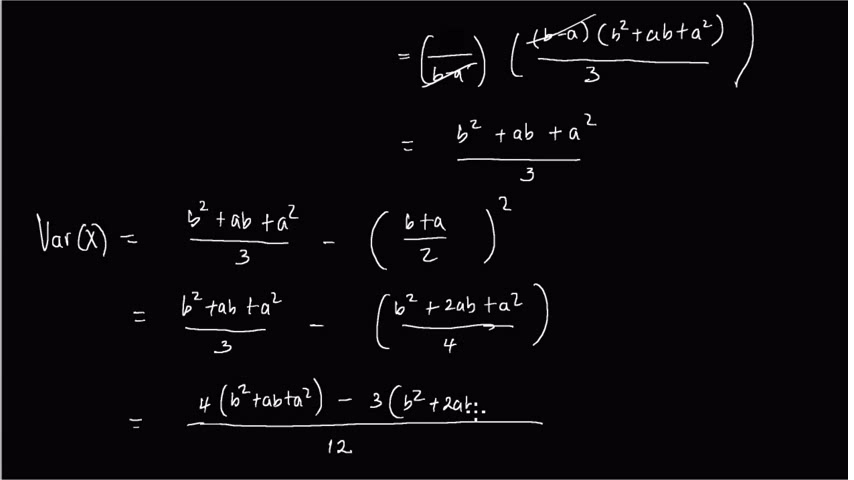 = ( / b-a ) ( (b-a)(b²+ab+a²) / 3 )
= b² + ab + a² / 3
Var(X) = b² + ab + a² / 3 - ( b+a / 2 )²
= b² + ab + a² / 3 - ( b² + 2ab + a² / 4 )
= 4(b²+ab+a²) - 3(b²+2ab / 12